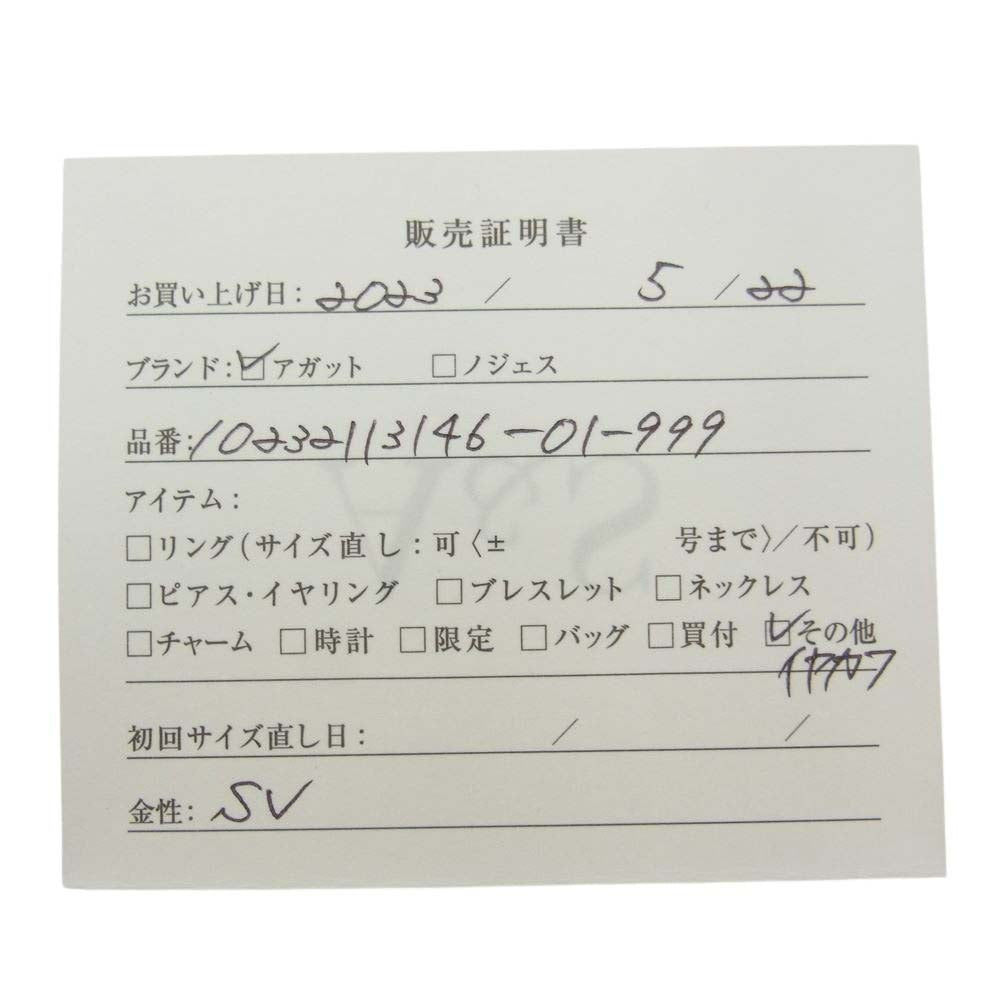 販売証明書
お買い上げ日: 2023 / 5 / 22
ブランド: ☑アガット □ノジェス
品番: 10232113146-01-999
アイテム:
□リング(サイズ直し: 可〈± 号まで〉/不可)
□ピアス・イヤリング □ブレスレット □ネックレス
□チャーム □時計 □限定 □バッグ □買付 ☑その他
イヤカフ
初回サイズ直し日: / /
金性: SV